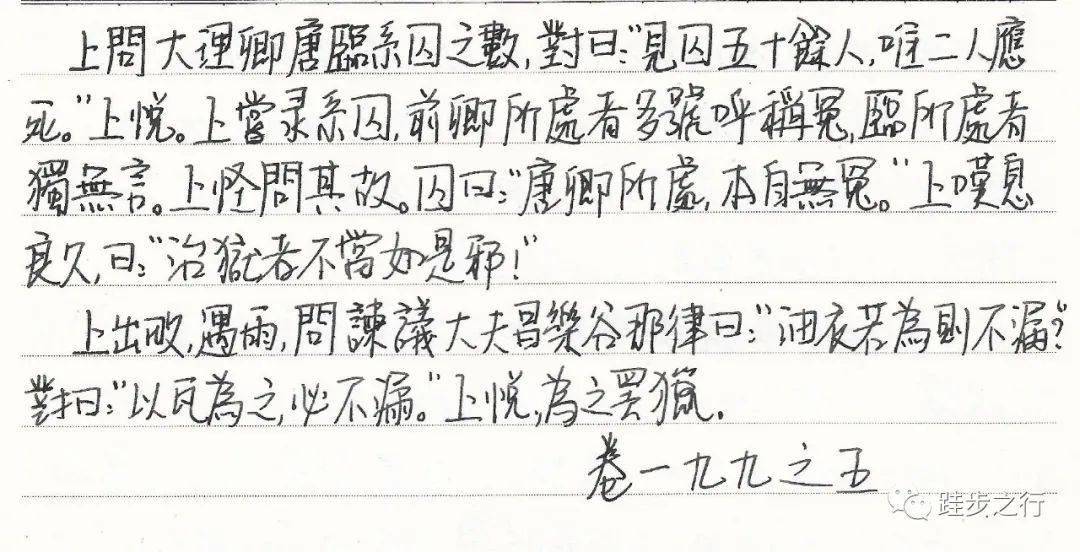 上問大理卿唐臨系囚之數,對曰:"見囚五十餘人,唯二人應
死。"上悅。上嘗录系囚,前卿所處者多號呼稱冤,臨所處者
獨無言。上怪問其故。囚曰:"唐卿所處,本自無冤。"上嘆息
良久,曰:"治獄者不當如是邪!"
上出畋,遇雨,問諫議大夫昌樂谷那律曰:"油衣若為則不漏?"
對曰:"以瓦為之,必不漏。"上悅,為之罢獵.
卷一九九之五
跬步之行